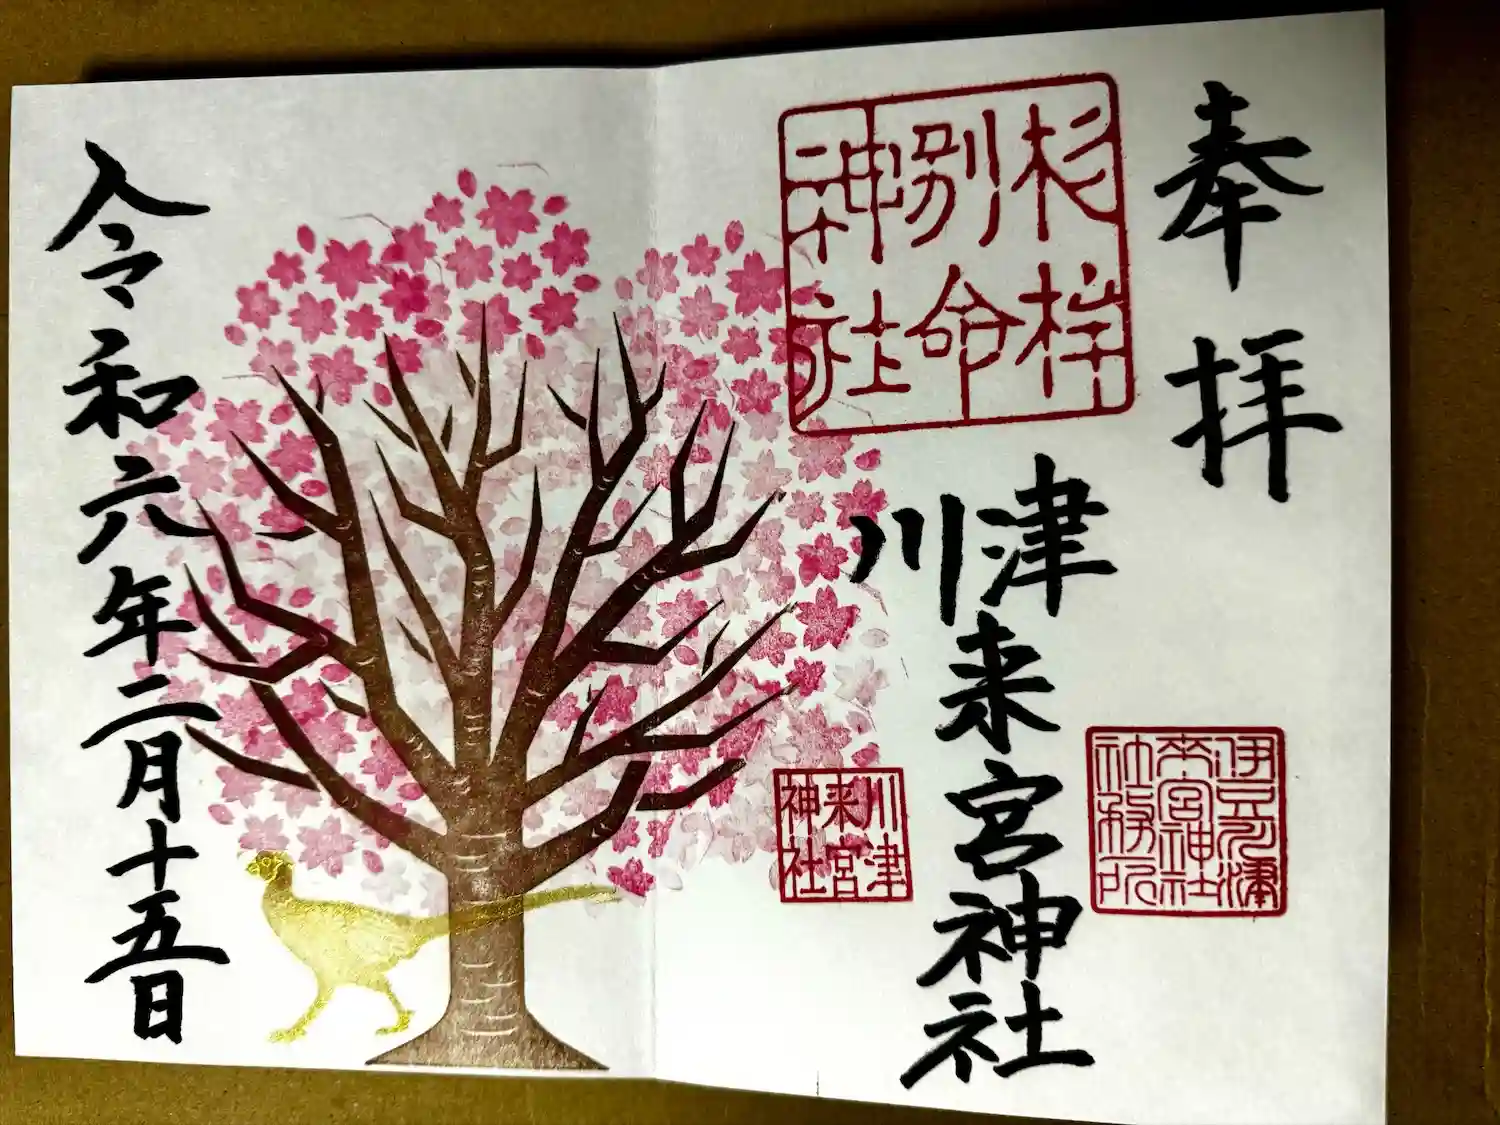 奉拝
杉桙
別命
神社
川津来宮神社
伊豆川津
来宮神社
社務所
川津
来宮
神社
令和六年二月十五日